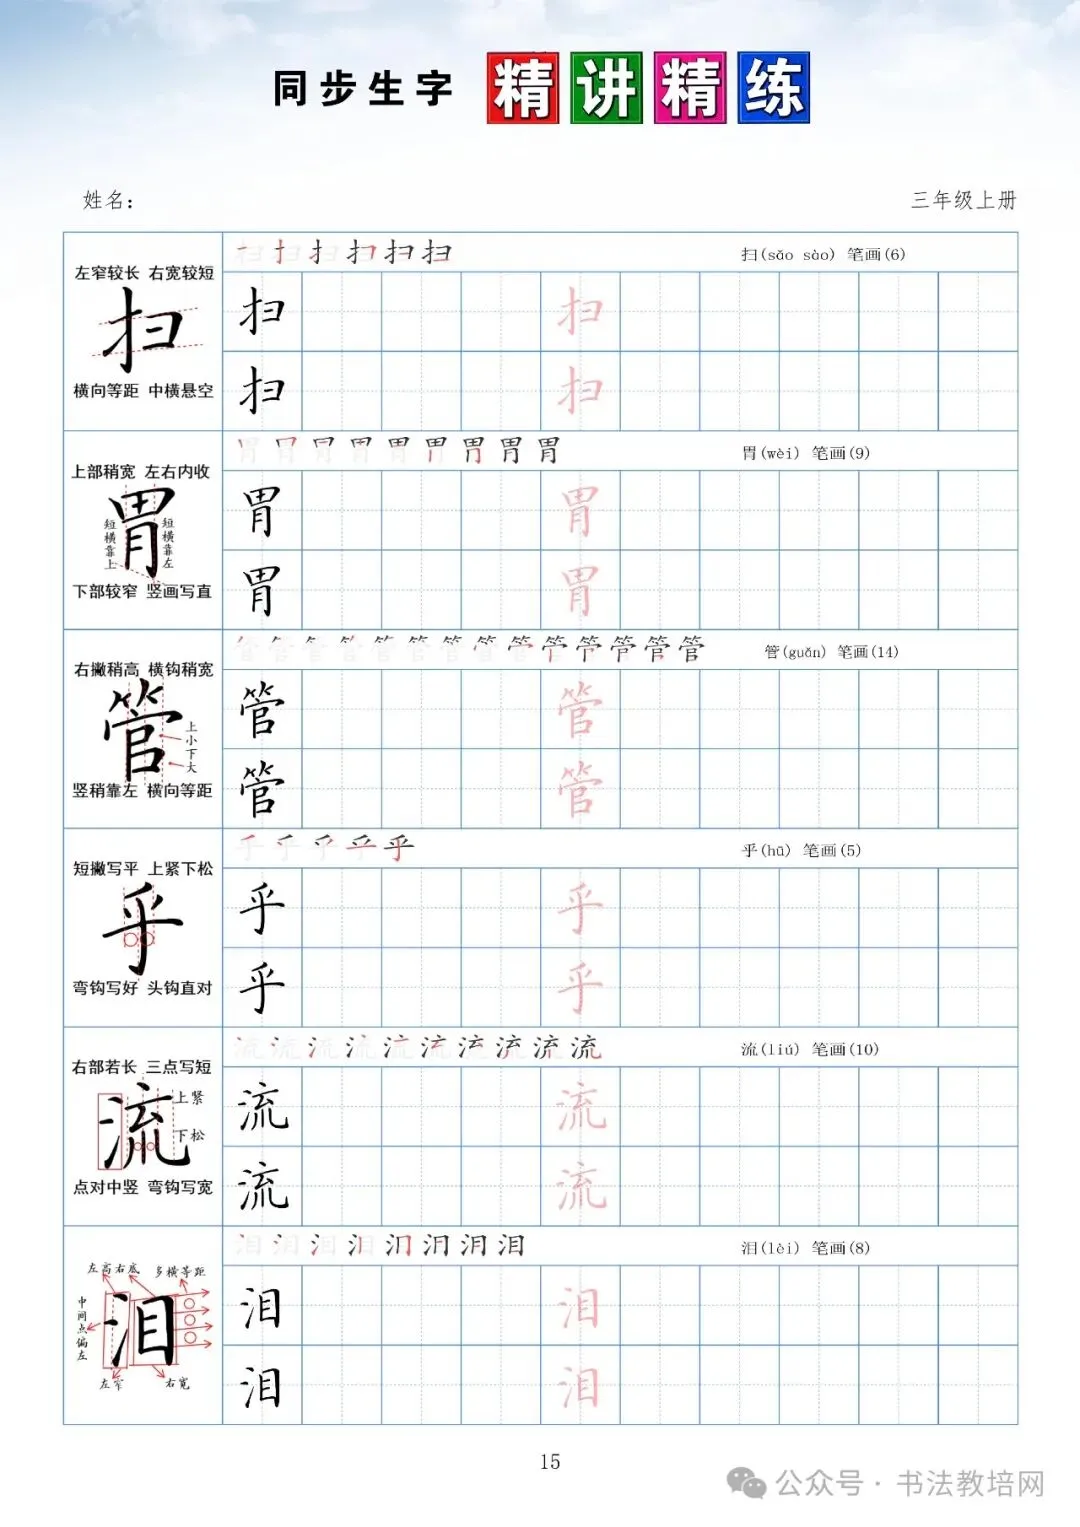 同步生字 精讲精练
姓名：
三年级上册
左窄较长 右宽较短
扫
横向等距 中横悬空
扫(sǎo sào) 笔画(6)
扫 扫
扫 扫
上部稍宽 左右内收
短横靠上
胃
短横靠左
下部较窄 竖画写直
胃(wèi) 笔画(9)
胃 胃
胃 胃
右撇稍高 横钩稍宽
管
上小下大
竖稍靠左 横向等距
管(guǎn) 笔画(14)
管 管
管 管
短撇写平 上紧下松
乎
弯钩写好 头钩直对
乎(hū) 笔画(5)
乎 乎
乎 乎
右部若长 三点写短
流
上紧
下松
点对中竖 弯钩写宽
流(liú) 笔画(10)
流 流
流 流
左高右底 多横等距
中间点偏左
泪
左窄 右宽
泪(lèi) 笔画(8)
泪 泪
泪 泪
15
公众号·书法教培网